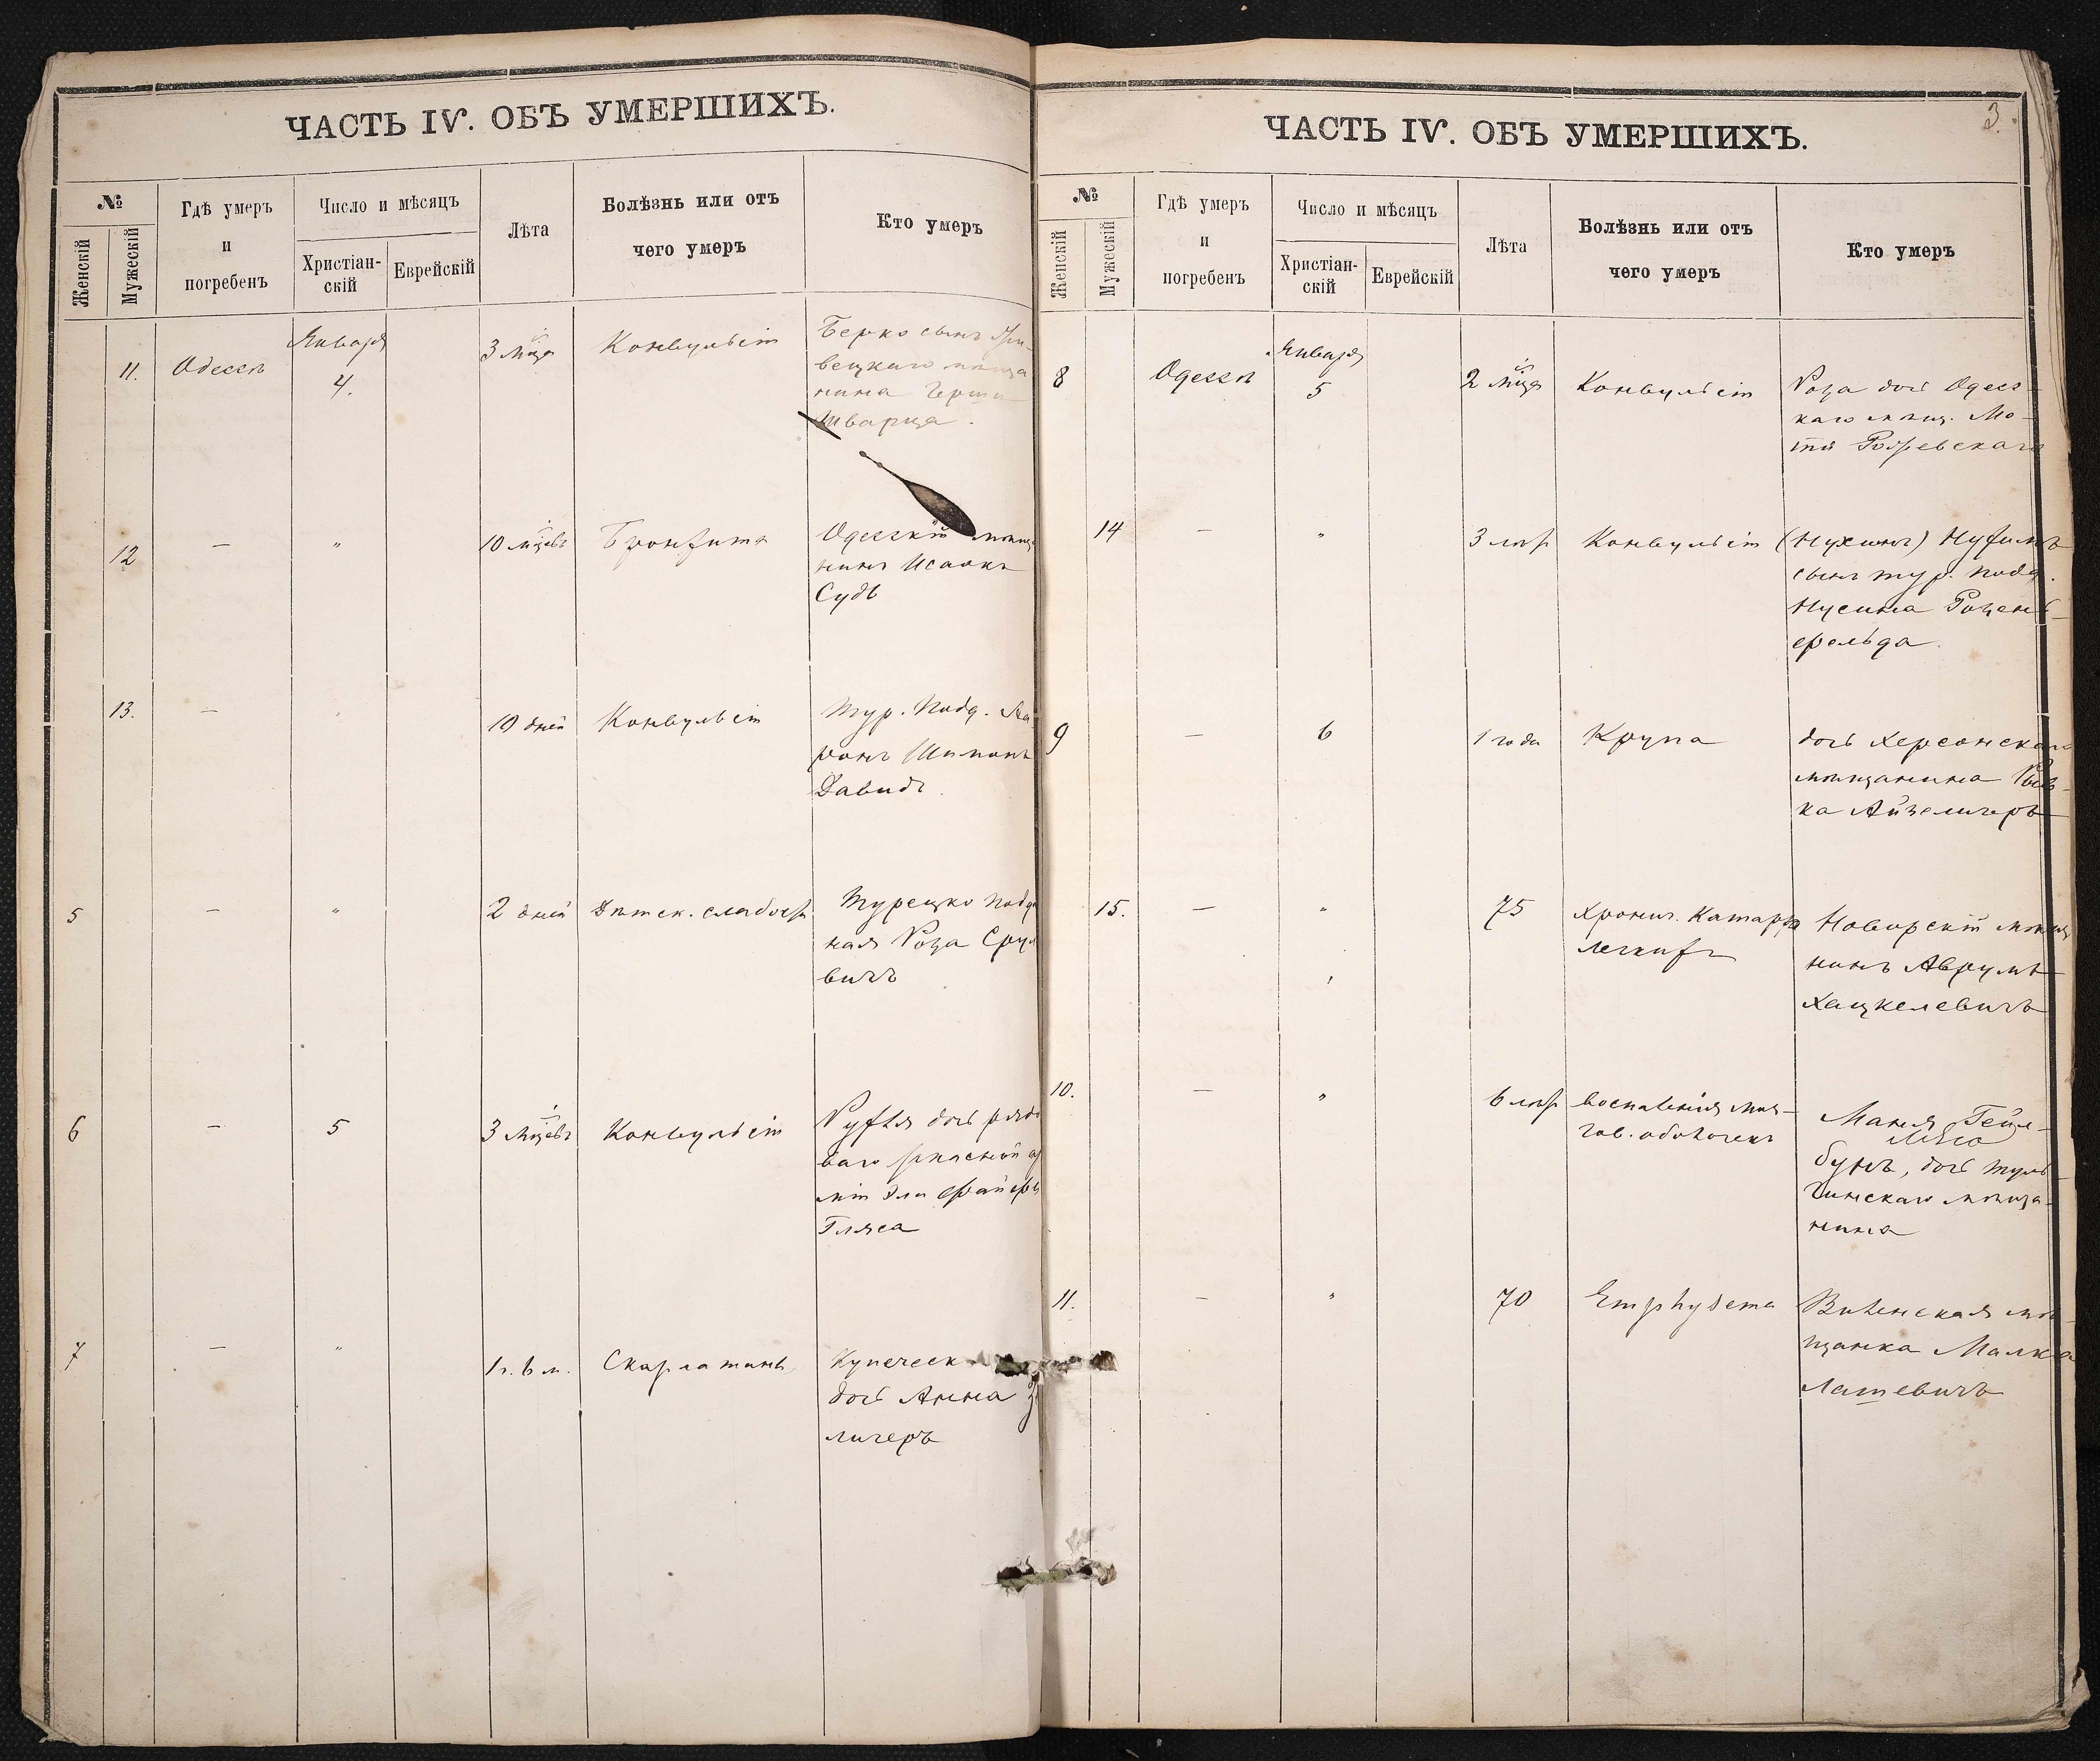 ЧАСТЬ IV. ОБЪ УМЕРШИХЪ.
№
Женскій
Мужескій
Гдѣ умеръ
и
погребенъ
Число и мѣсяцъ
Христіан-
скій
Еврейскій
Лѣта
Болѣзнь или отъ
чего умеръ
Кто умеръ
11.
Одессѣ
Января
4.
3 мца
Конвульсіи
Берко сынъ
вецкаго мѣща
нина Герша
Шварца.
12
—
"
10 мцевъ
Бронхитъ
Одесскій мѣща
нинъ Исаакъ
Судъ
13.
—
10 дней
Конвульсіи
Тур. подд. Аа
ронъ Шимонъ
Давидъ
5
—
"
2 дней
Дѣтск. слабость
Турецко подд
ная Роза Срул
вичъ
6
—
5
3 мцевъ
Конвульсіи
Рухля дочь рядо
ваго запасной ар
міи Эли
Гляса
7
—
"
1 г. 6 м.
Скарлатинъ
Купеческ
дочь Анна
лигеръ
3.
ЧАСТЬ IV. ОБЪ УМЕРШИХЪ.
№
Женскій
Мужескій
Гдѣ умеръ
и
погребенъ
Число и мѣсяцъ
Христіан-
скій
Еврейскій
Лѣта
Болѣзнь или отъ
чего умеръ
Кто умеръ
8
Одессѣ
Января
5
2 мца
Конвульсіи
Роза дочь Одесс-
каго мѣщ. Мо-
ти
14
—
"
3 лѣт
Конвульсіи
(Нухимъ) Нухимъ
сынъ тур. подд.
Нусина Розен-
фельда.
9
—
6
1 года
Крупа
дочь Херсонскаго
мѣщанина Рив-
ка Айзелигеръ
15.
—
"
75
Хронич. Катарръ
легкихъ
мѣщ
нинъ Аврумъ
Хацкелевичъ
10.
—
"
6 лѣт
воспаленія моз-
гов. оболочекъ
Маня Гейл-
бунъ, дочь Туль-
чинскаго мѣща-
нина
11.
—
"
70
Emphysema
Виленская мѣ-
щанка Малка
Лашевичъ